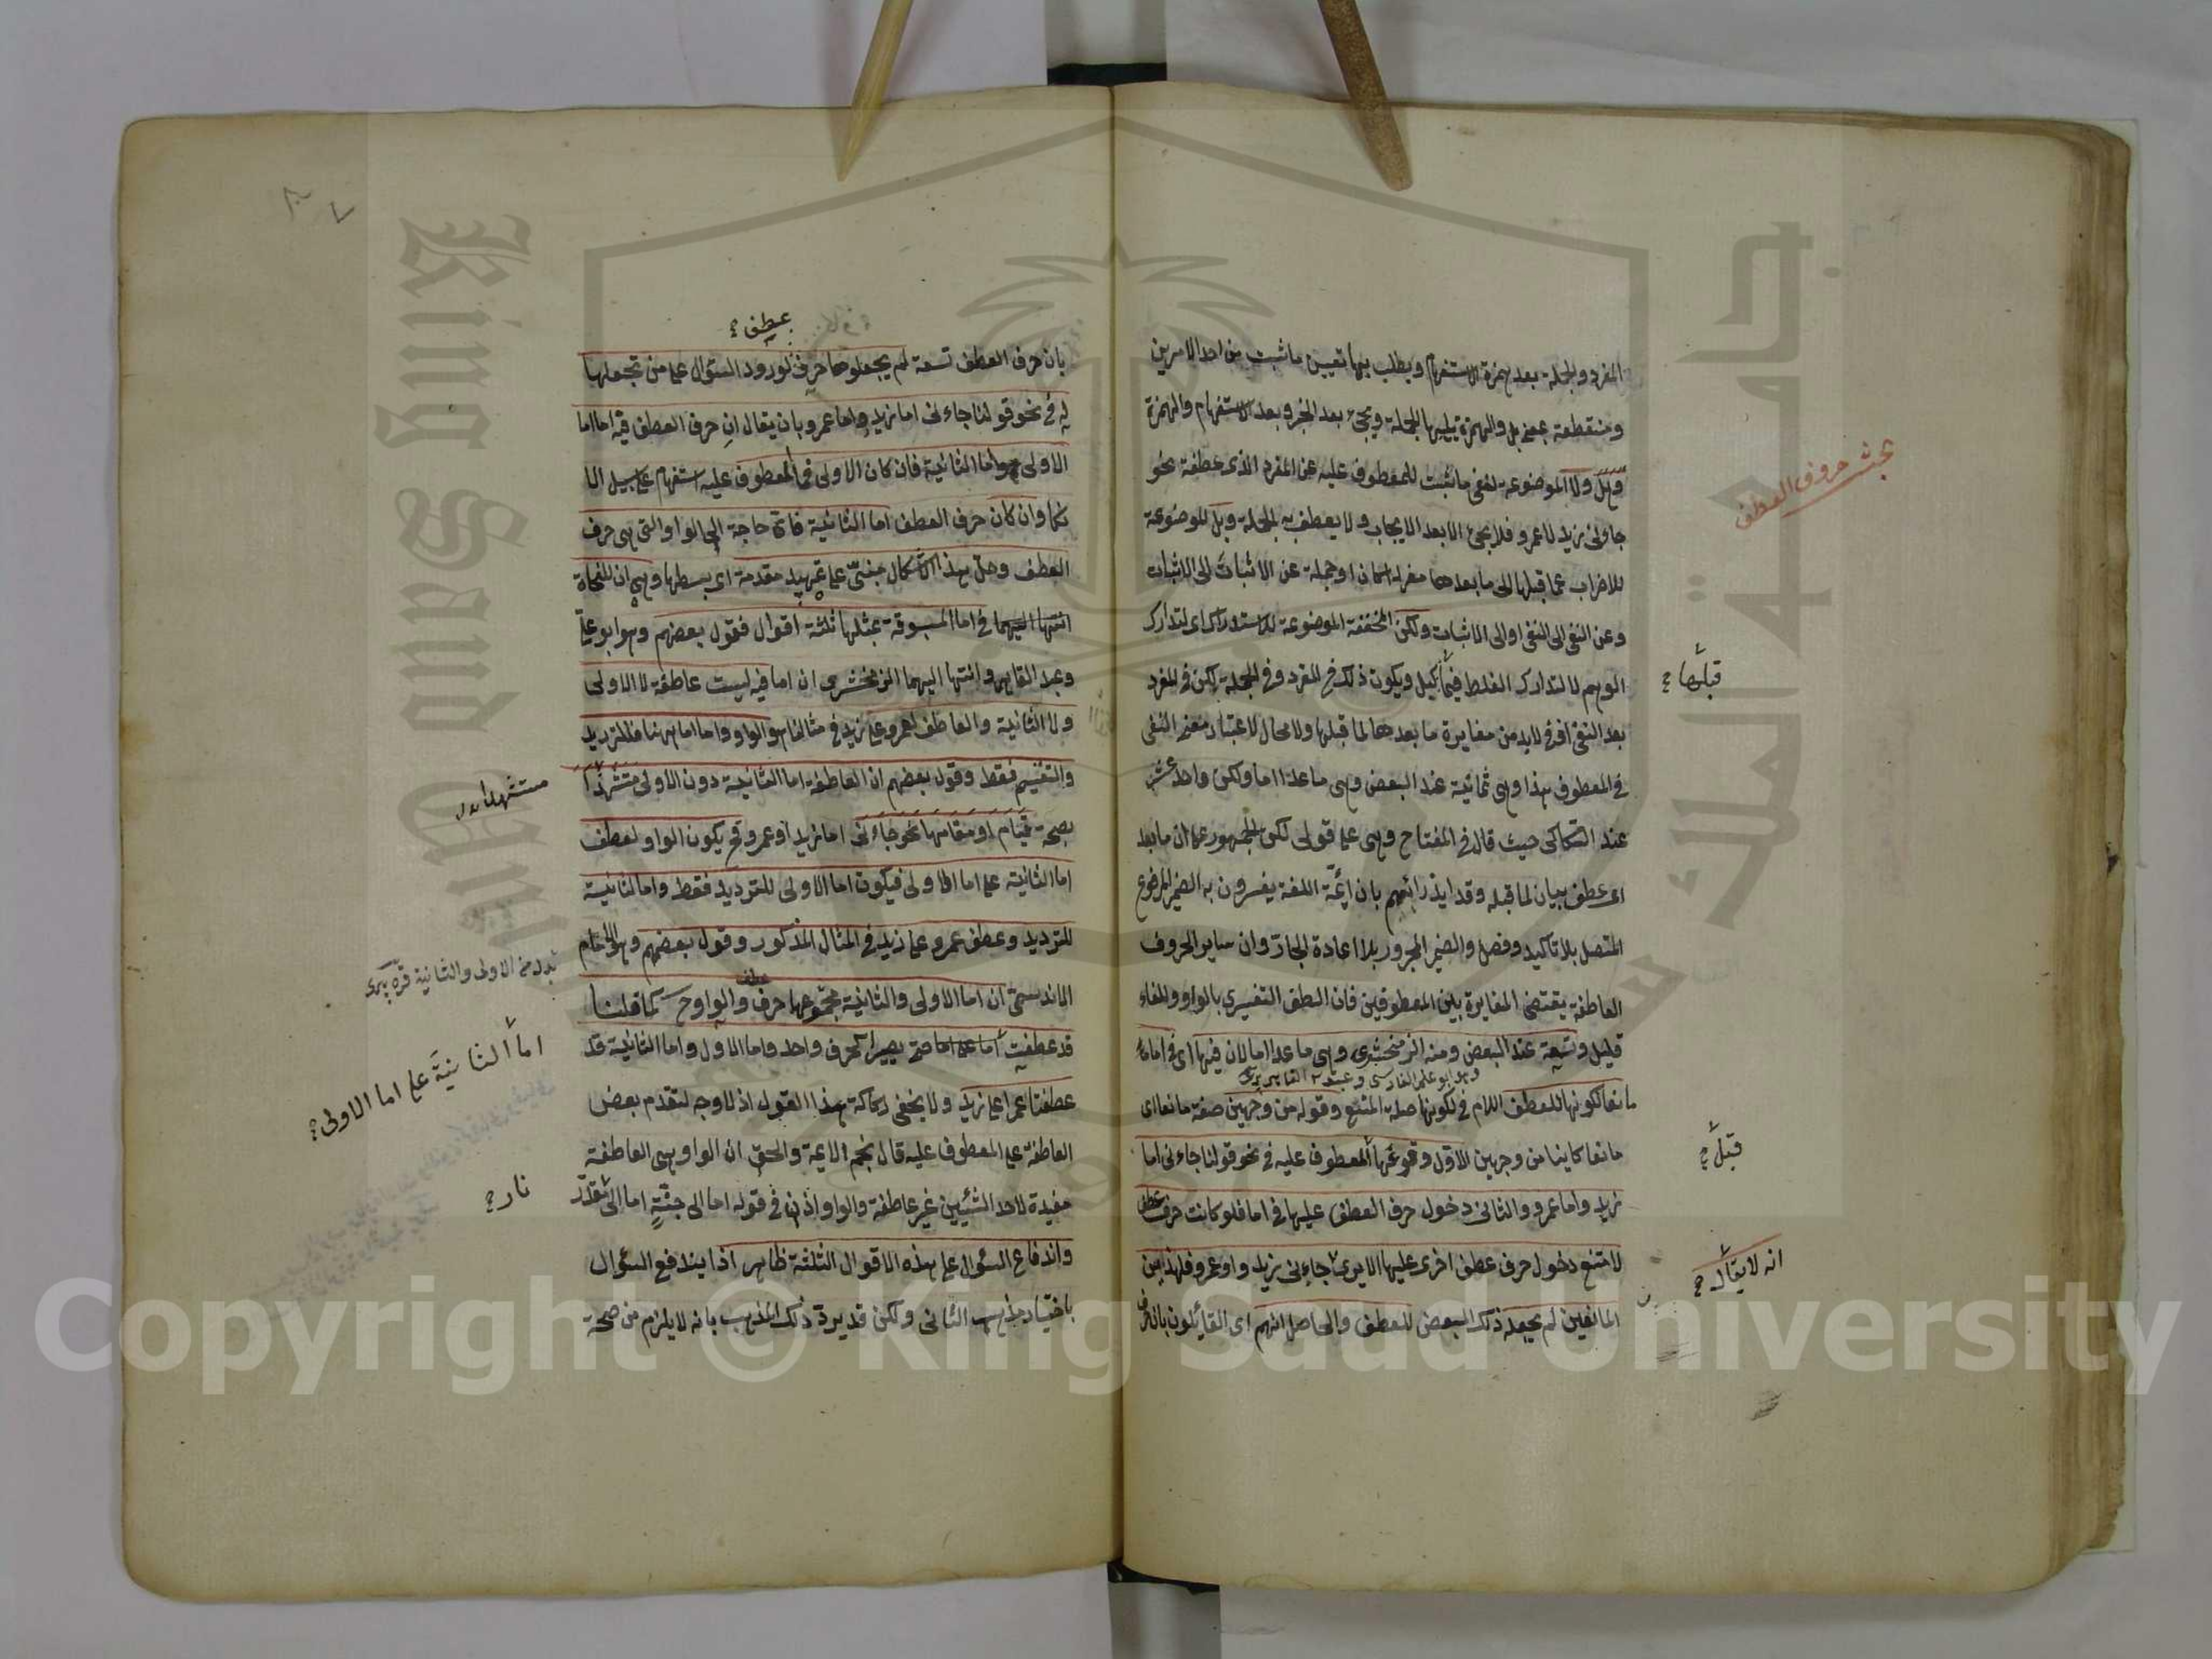 المفرد والجملة بعد همزة الاستفهام ويطلب بها تعيين ما ثبت من احد الامرين
ومنقطعة بمعنى بل والهمزة تليها الجملة ويجئ بعد الخبر وبعد الاستفهام والهمزة
وهل ولا الموضوعة لنفى ما ثبت للمعطوف عليه عن المفرد الذى عطفة نحو
جاءنى زيد لا عمرو فلا يجئ الا بعد الايجاب ولا يعطف به الجملة وبل الموضوعة
للاضراب عما قبلها الى ما بعدها مفردا كان او جملة عن الاثبات الى الاثبات
وعن النفى الى النفى او الى الاثبات ولكن المخففة الموضوعة للاستدراك اى لتدارك
الوهم لا لتدارك الغلط فيما كيل ويكون ذلك فى المفرد وفى الجملة لكن فى المفرد
بعد النفى اذ لابد من مغايرة ما بعدها لما قبلها ولا مجال لاعتبار معنى النفى
فى المعطوف هذا وهى ثمانية عند البعض وهى ما عدا اما ولكن واحد عشر
عند السكاكى حيث قال فى المفتاح وهى على قولى لكن الجمهور على ان ما بعد
اى عطف بيان لما قبله وقد ايد رائهم بان ائمة اللغة يفسرون به الضمير المرفوع
المتصل بلا تاكيد وفصل والضمير المجرور بلا اعادة الجار وان ساير الحروف
العاطفة يقتضى المغايرة بين المعطوفين فان العطف التفسيرى بالواو والفاء
قليل وتسعة عند البعض ومنه الزمخشرى وهى ما عدا اما لان فيها اى فى اما
وهو ابو على الفارسى وعبد القاهر
مانعا لكونها للعطف اللام فى لكونها صلة المنع وقوله من وجهين صفة مانعا اى
مانعا كاينا من وجهين الاول وقوعها المعطوف عليه فى نحو قولنا جاءنى اما
زيد واما عمرو والثانى دخول حرف العطف عليها فى اما فلو كانت حرف عطف
لامتنع دخول حرف عطف اخرى عليها الا يرى جاءنى زيد واو عمرو فلهذين
المانعين لم يجعله ذلك البعض للعطف والحاصل انهم اى القائلون بان
بحث حروف العطف
قبلها
قبل
انه لا يقال
عطف
بان حرف العطف تسعة لم يجعلوها حرف لورود السؤال على من تجعلها
له فى نحو قولنا جاءنى اما زيد واما عمرو بان يقال ان حرف العطف فيه اما اما
الاولى واما الثانية فان كان الاولى فما المعطوف عليه استفهام على سبيل الا
نكار وان كان حرف العطف اما الثانية فاى حاجة الى الواو التى هى حرف
العطف وحل هذا الاشكال مبنى على تمهيد مقدمة اى بسطها وهى ان للنحاة
فى اما المسبوقة بمثلها ثلثة اقوال فقول بعضهم وهو ابو على
وعبد القاهر وانتها اليهما الزمخشرى ان اما فيه ليست عاطفة لا الاولى
ولا الثانية والعاطف لعمرو على زيد فى مثالنا هو الواو واما اما ههنا فللترديد
والتقسيم فقط وقول بعضهم ان العاطفة اما الثانية دون الاولى مستشهدا
بصحة قيام او مقامها نحو جاءنى اما زيد او عمرو وح يكون الواو لعطف
اما الثانية على اما الاولى فيكون اما الاولى للترديد فقط واما الثانية
للترديد وعطف عمرو على زيد فى المثال المذكور وقول بعضهم وهو الامام
ان اما الاولى والثانية مجموعها حرف عطف والواو ح كما قلنا
قد عطفت اما على اما حتى يصيرا كحرف واحد واما الاول واما الثانية قد
عطفتا عمرا على زيد ولا يخفى ركاكة هذا القول اذ لا وجه لتقدم بعض
العاطفة على المعطوف عليه قال نجم الائمة والحق ان الواو هى العاطفة
مفيدة لاحد الشيئين غير عاطفة والواو اذن فى قوله اما الى جنة اما الى
واندفاع السؤال على هذه الاقوال الثلثة ظاهر اذا يندفع السؤال
باختيار مذهب الثانى ولكن قد يرد ذلك المذهب بانه لا يلزم من صحة
اما الثانية على اما الاولى
نار
Copyright © King Saud University
King Saud University
جامعة الملك سعود